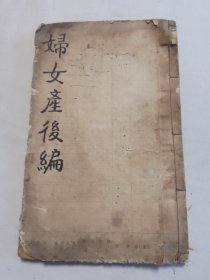 婦女產後編